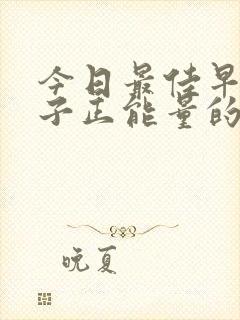 今日最佳早
子正能量的
晚夏